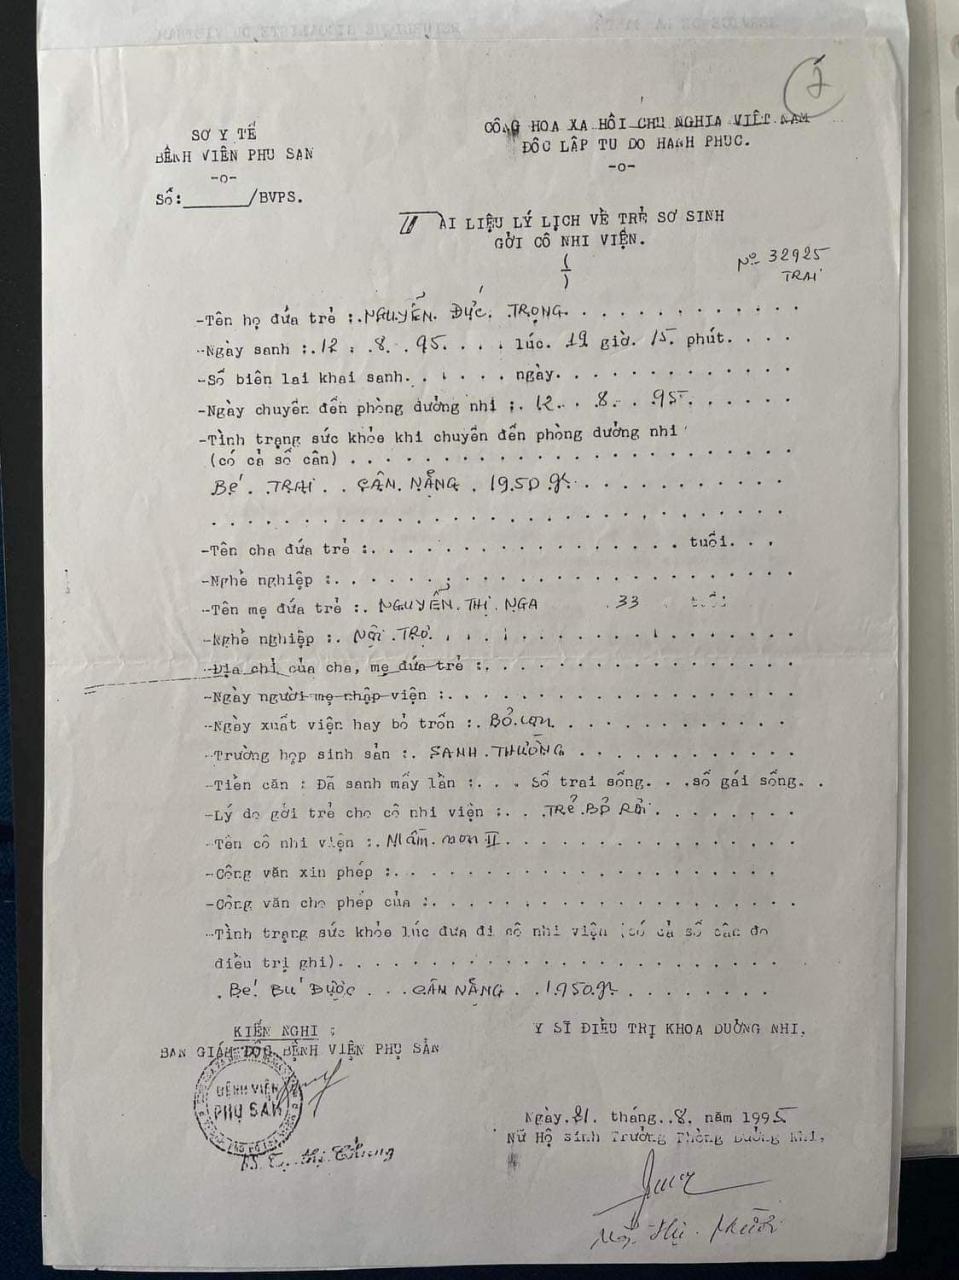 SƠ Y TẾ
BỆNH VIÊN PHU SAN
-o-
Số:______/BVPS.
CÔNG HOA XA HÔI CHU NGHIA VIÊT NAM
ĐÔC LẬP TU DO HANH PHUC.
-o-
TÀI LIỆU LÝ LỊCH VỀ TRẺ SƠ SINH
GỞI CÔ NHI VIỆN.
No 32925
TRAI
-Tên họ đứa trẻ :.NGUYỄN. ĐỨC. TRỌNG. . . . . . . . .
-Ngày sanh :.12 . .8. .95. . . . lúc. 19 giờ. 15. phút. . . .
-Số biên lai khai sanh. . . . . ngày. . . . . . . . . . .
-Ngày chuyển đến phòng dưỡng nhi :. 12. . .8. . .95. . . . . .
-Tình trạng sức khỏe khi chuyển đến phòng dưỡng nhi
(có cả số cân) . . . . . . . . . . . . . . . . . . . .
Bé. TRAI. . CÂN. NẶNG. . 1950 gr. . . . . . . . . .
-Tên cha đứa trẻ :. . . . . . . . . . . . . . . tuổi. . .
-Nghề nghiệp :. . . . . . . . . . . . . . . . . . . . .
-Tên mẹ đứa trẻ :. NGUYỄN. THỊ. NGA .33 tuổi
-Nghề nghiệp :. NỘI. TRỢ. . . . . . . . . . . . . . .
-Địa chỉ của cha, mẹ đứa trẻ :. . . . . . . . . . . . .
-Ngày người mẹ nhập viện :. . . . . . . . . . . . . . .
-Ngày xuất viện hay bỏ trốn :. Bỏ. con. . . . . . . . . .
-Trường hợp sinh sản :. SANH. THƯỜNG. . . . . . . . . .
-Tiền căn : Đã sanh mấy lần :. . . Số trai sống. . .số gái sống. .
-Lý do gởi trẻ cho cô nhi viện :. . .TRẺ. BỎ RƠI. . . . . . . .
-Tên cô nhi viện :. Mầm. non II. . . . . . . . . . . .
-Công văn xin phép :. . . . . . . . . . . . . . . . . .
-Công văn cho phép của :. . . . . . . . . . . . . . . . .
-Tình trạng sức khỏe lúc đưa đi cô nhi viện (có cả số cân do
điều trị ghi). . . . . . . . . . . . . . . . . . . . .
. Bé. BÚ ĐƯỢC. . . . CÂN NẶNG. . 1.950.gr. . . . . . .
KIẾN NGHI :
BAN GIÁM ĐỐC BỆNH VIỆN PHỤ SẢN
Y SĨ ĐIỀU TRỊ KHOA DUỞNG NHI.
BỆNH VIỆN
PHỤ SẢN
Ngày.21. tháng. .8. năm 1995
Nữ Hộ sinh Trưởng Phòng Dưởng Nhi.